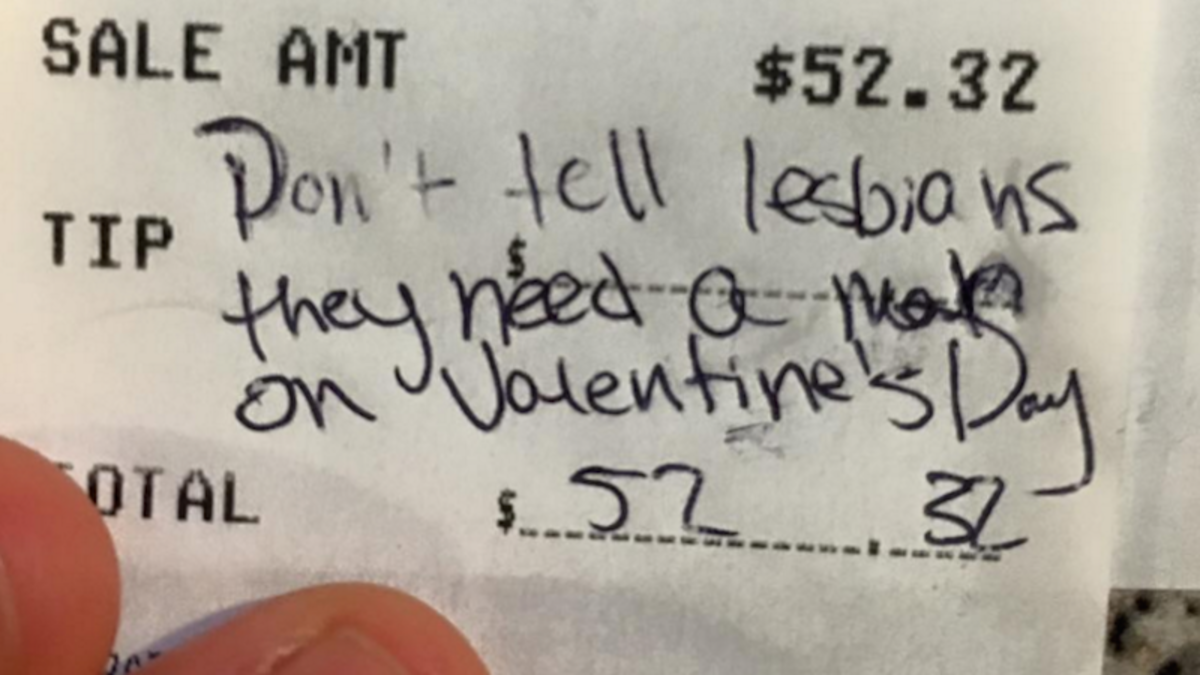 SALE AMT $52.32
Don't tell lesbians
TIP $
they need a man
on Valentine's Day
TOTAL $ 52.32